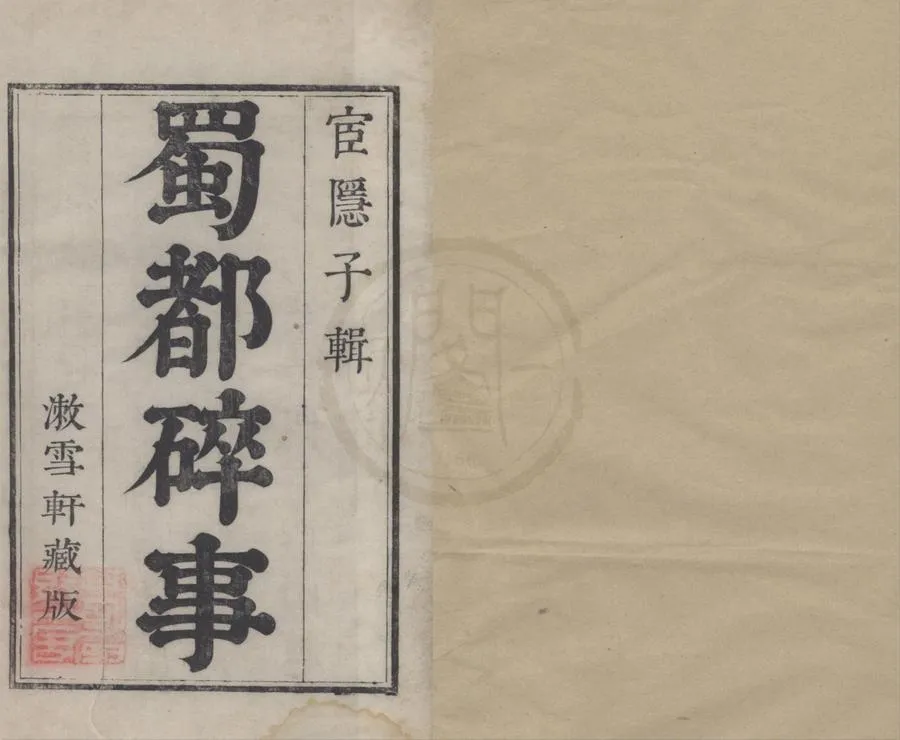 宦隱子輯
蜀都碎事
漱雪軒藏版